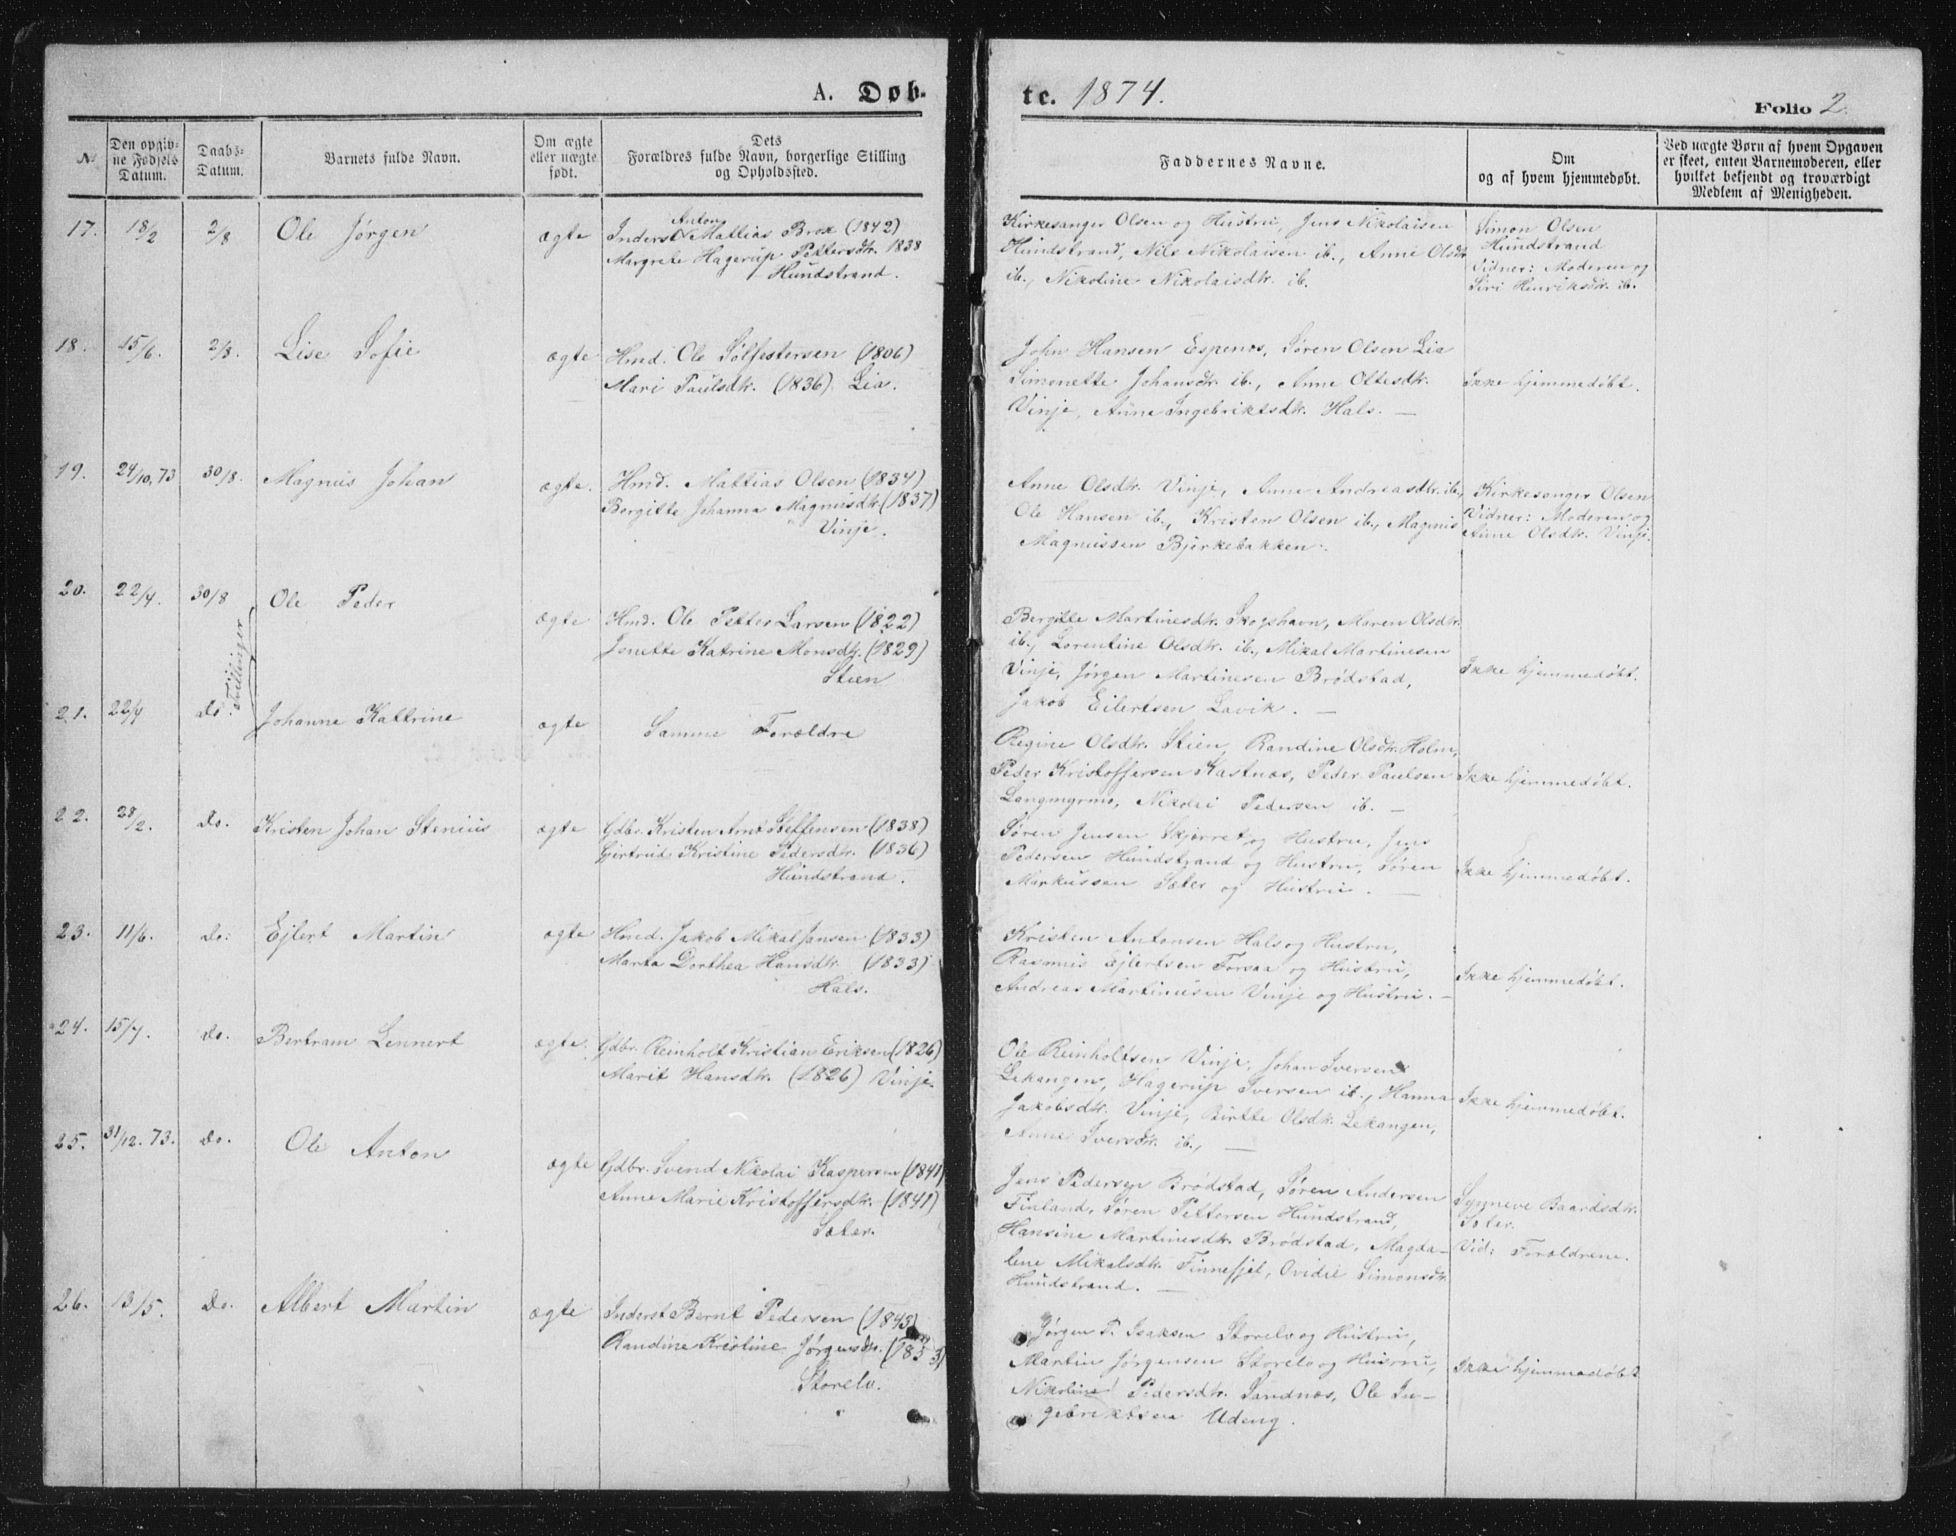 A. Døb-
te. 1874.
Folio 2.
No
Den opgiv-
ne Fødsels
Datum.
Daabs-
Datum.
Barnets fulde Navn.
Om ægte
eller uægte
født.
Dets
Forældres fulde Navn, borgerlige Stilling
og Opholdssted.
Faddernes Navne.
Om
og af hvem hjemmedøbt.
Ved uægte Børn af hvem Opgaven
er skeet, enten Barnemoderen, eller
hvilket bekjendt og troværdigt
Medlem af Menigheden.
17. 18/2 2/8 Ole Jørgen ægte
Anton
Inderst Mattias Brox (1842)
Margrete Hagerup Pettersdtr. 1838
Hundstrand.
Kirkesanger Olsen og Hustru, Jens Nikolaisen
Hundstrand, Nils Nikolaisen ib., Anne Olsdtr.
ib., Nikoline Nikolaisdtr. ib.
Simon Olsen
Hundstrand
Vidner: Moderen og
Siri Henriksdtr. ib.
18. 15/6. 2/8. Lise Sofie ægte
Hmd. Ole Sølfestersen (1806)
Mari Paulsdtr. (1836) Lia.
John Hansen Espenes, Søren Olsen Lia
Simonette Johansdtr. ib., Anne Oltesdtr.
Vinje, Anne Ingebriktsdtr. Hals. —
Ikke hjemmedøbt.
19. 24/10.73 30/8. Magnus Johan ægte.
Hmd. Mattias Olsen (1834)
Bergitte Johanna Magnusdtr (1837)
Vinje.
Anne Olsdtr. Vinje, Anne Andreasdtr. ib.,
Ole Hansen ib., Kristen Olsen ib., Magnus
Magnussen Bjerkebakken.
Kirkesanger Olsen
Vidner: Moderen og
Anne Olsdtr. Vinje.
20. 22/4. 30/8 Ole Peder ægte
Tvillinger
Hmd. Ole Petter Larsen (1822)
Jonette Katrine Monsdtr. (1829)
Stien
Bergitte Martinesdtr. Skogshavn, Maren Olsdtr.
ib., Lorentine Olsdtr. ib., Mikal Martinesen
Vinje, Jørgen Martinesen Brødstad,
Jakob Eilertsen Lavik. —
Ikke hjemmedøbt.
21. 22/4 do. Johanne Kattrine ægte
Samme Forældre
Regine Olsdtr. Stien, Randine Olsdtr. Holm,
Peder Kristoffersen Kastnes, Peder Paulsen
Langmyrmo, Nikolai Pedersen ib. —
Ikke hjemmedøbt.
22. 28/2. do. Kristen Johan Stenius ægte
Gdbr. Kristen Arnt Steffensen (1838)
Gjertrud Kristine Pedersdtr. (1836)
Hundstrand.
Søren Jensen Skjerret og Hustru, Jens
Pedersen Hundstrand og Hustru, Søren
Markussen Sæter og Hustru. —
Ikke hjemmedøbt.
23. 11/6. do. Ejlert Martin ægte
Hmd. Jakob Mikal Jansen (1833)
Marta Dorthea Hansdtr (1833)
Hals.
Kristen Antonsen Hals og Hustru,
Rasmus Ejlertsen Forsaa og Hustru,
Andreas Martinusen Vinje og Hustru. —
Ikke hjemmedøbt.
24. 15/7. do. Bertram Lennert ægte.
Gdbr. Reinholt Kristian Eriksen (1826)
Marit Hansdtr. (1826) Vinje
Ole Reinholtsen Vinje, Johan Iversen
Lekangen, Hagerup Iversen ib., Hanna
Jakobsdtr. Vinje, Birtte Olsdtr. Lekangen,
Anne Iversdtr. ib., —
Ikke hjemmedøbt.
25. 31/12.73. do. Ole Anton ægte
Gdbr. Svend Nikolai Kaspersen (1841)
Anne Marie Kristoffersdtr. (1841)
Sæter.
Jens Pedersen Brødstad, Søren Andersen
Finland, Søren Pettersen Hundstrand,
Hansine Martinesdtr. Brødstad, Magda-
lene Mikalsdtr. Finnefjel, Ovidie Simonsdtr.
Hundstrand. —
Synneve Baardsdtr.
Sæter.
Vid: Forældrene.
26. 13/5. do. Albert Martin ægte
Inderst Bernt Pedersen (1843)
Randine Kristine Jørgensdtr. (1853)
Storelv.
Jørgen P. Isaksen Storelv og Hustru,
Martin Jørgensen Storelv og Husrru,
Nikoline Pedersdtr. Sandnes, Ole In-
gebriktsen Udeng.
Ikke hjemmedøbt